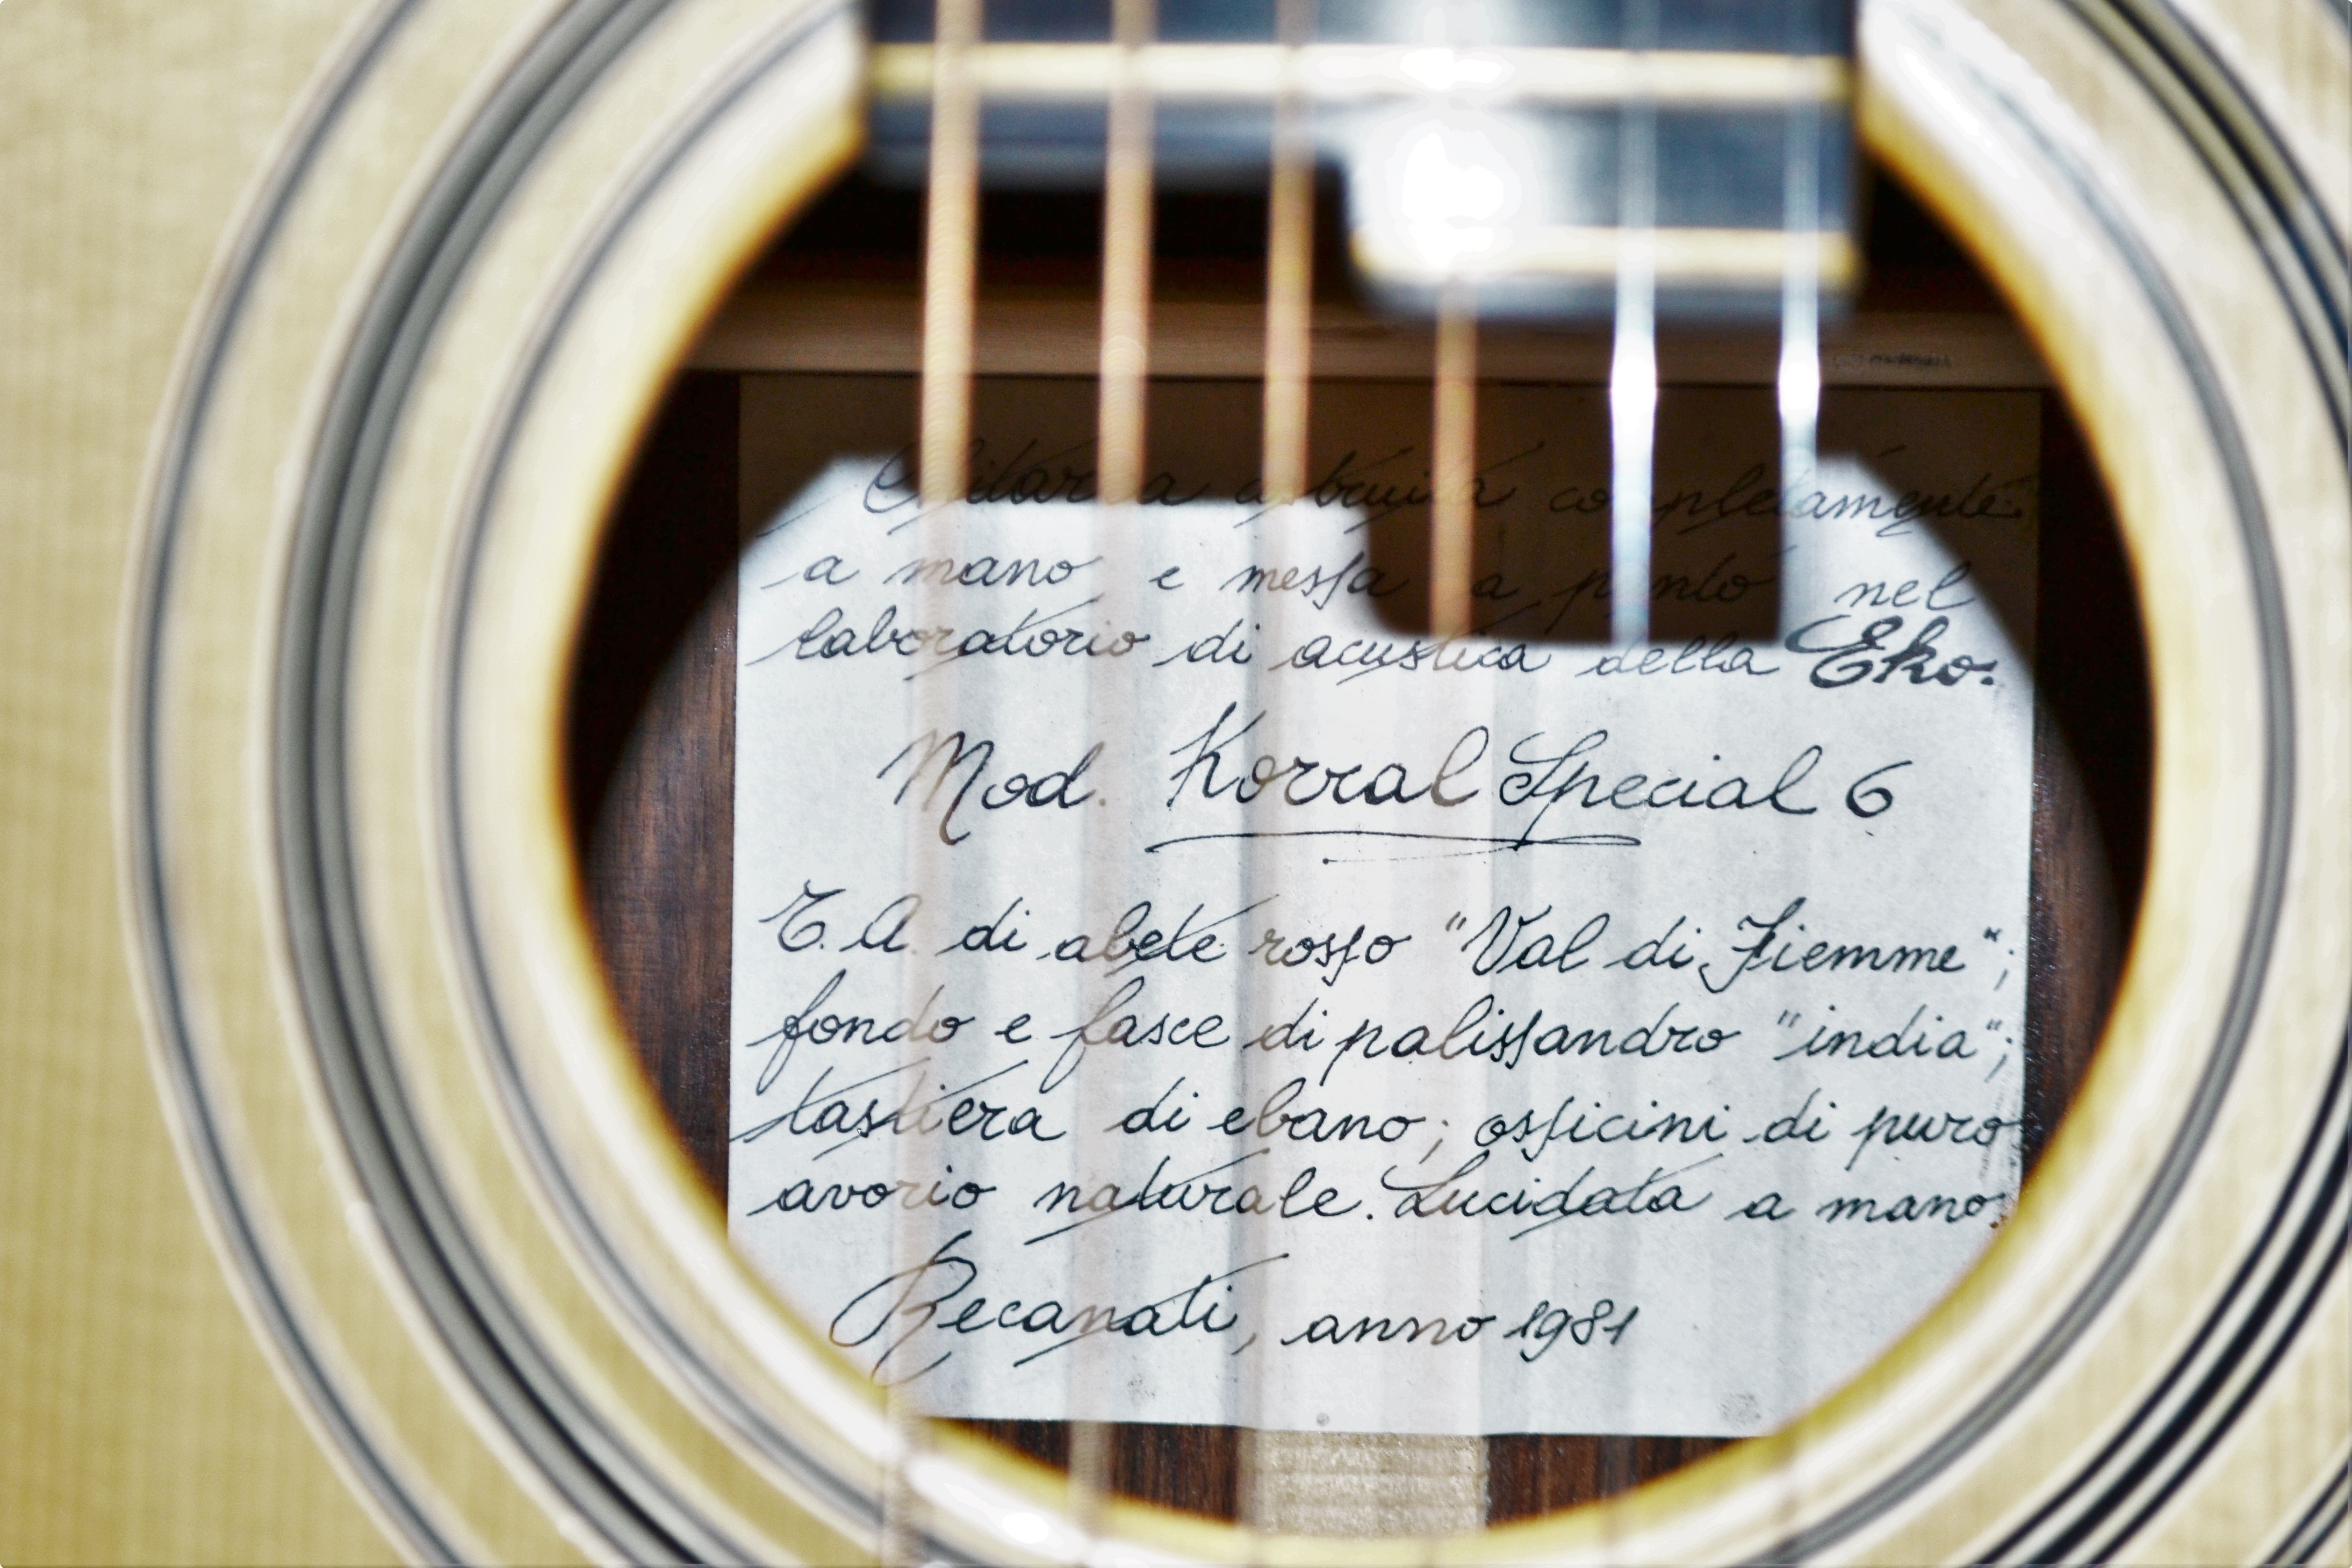 Chitarra costruita completamente
a mano e messa a punto nel
laboratorio di acustica della Eko.
Mod. Korral Special 6
T. A. di abete rosso "Val di Fiemme";
fondo e fasce di palissandro "india";
tastiera di ebano; ossicini di puro
avorio naturale. Lucidata a mano.
Recanati, anno 1981